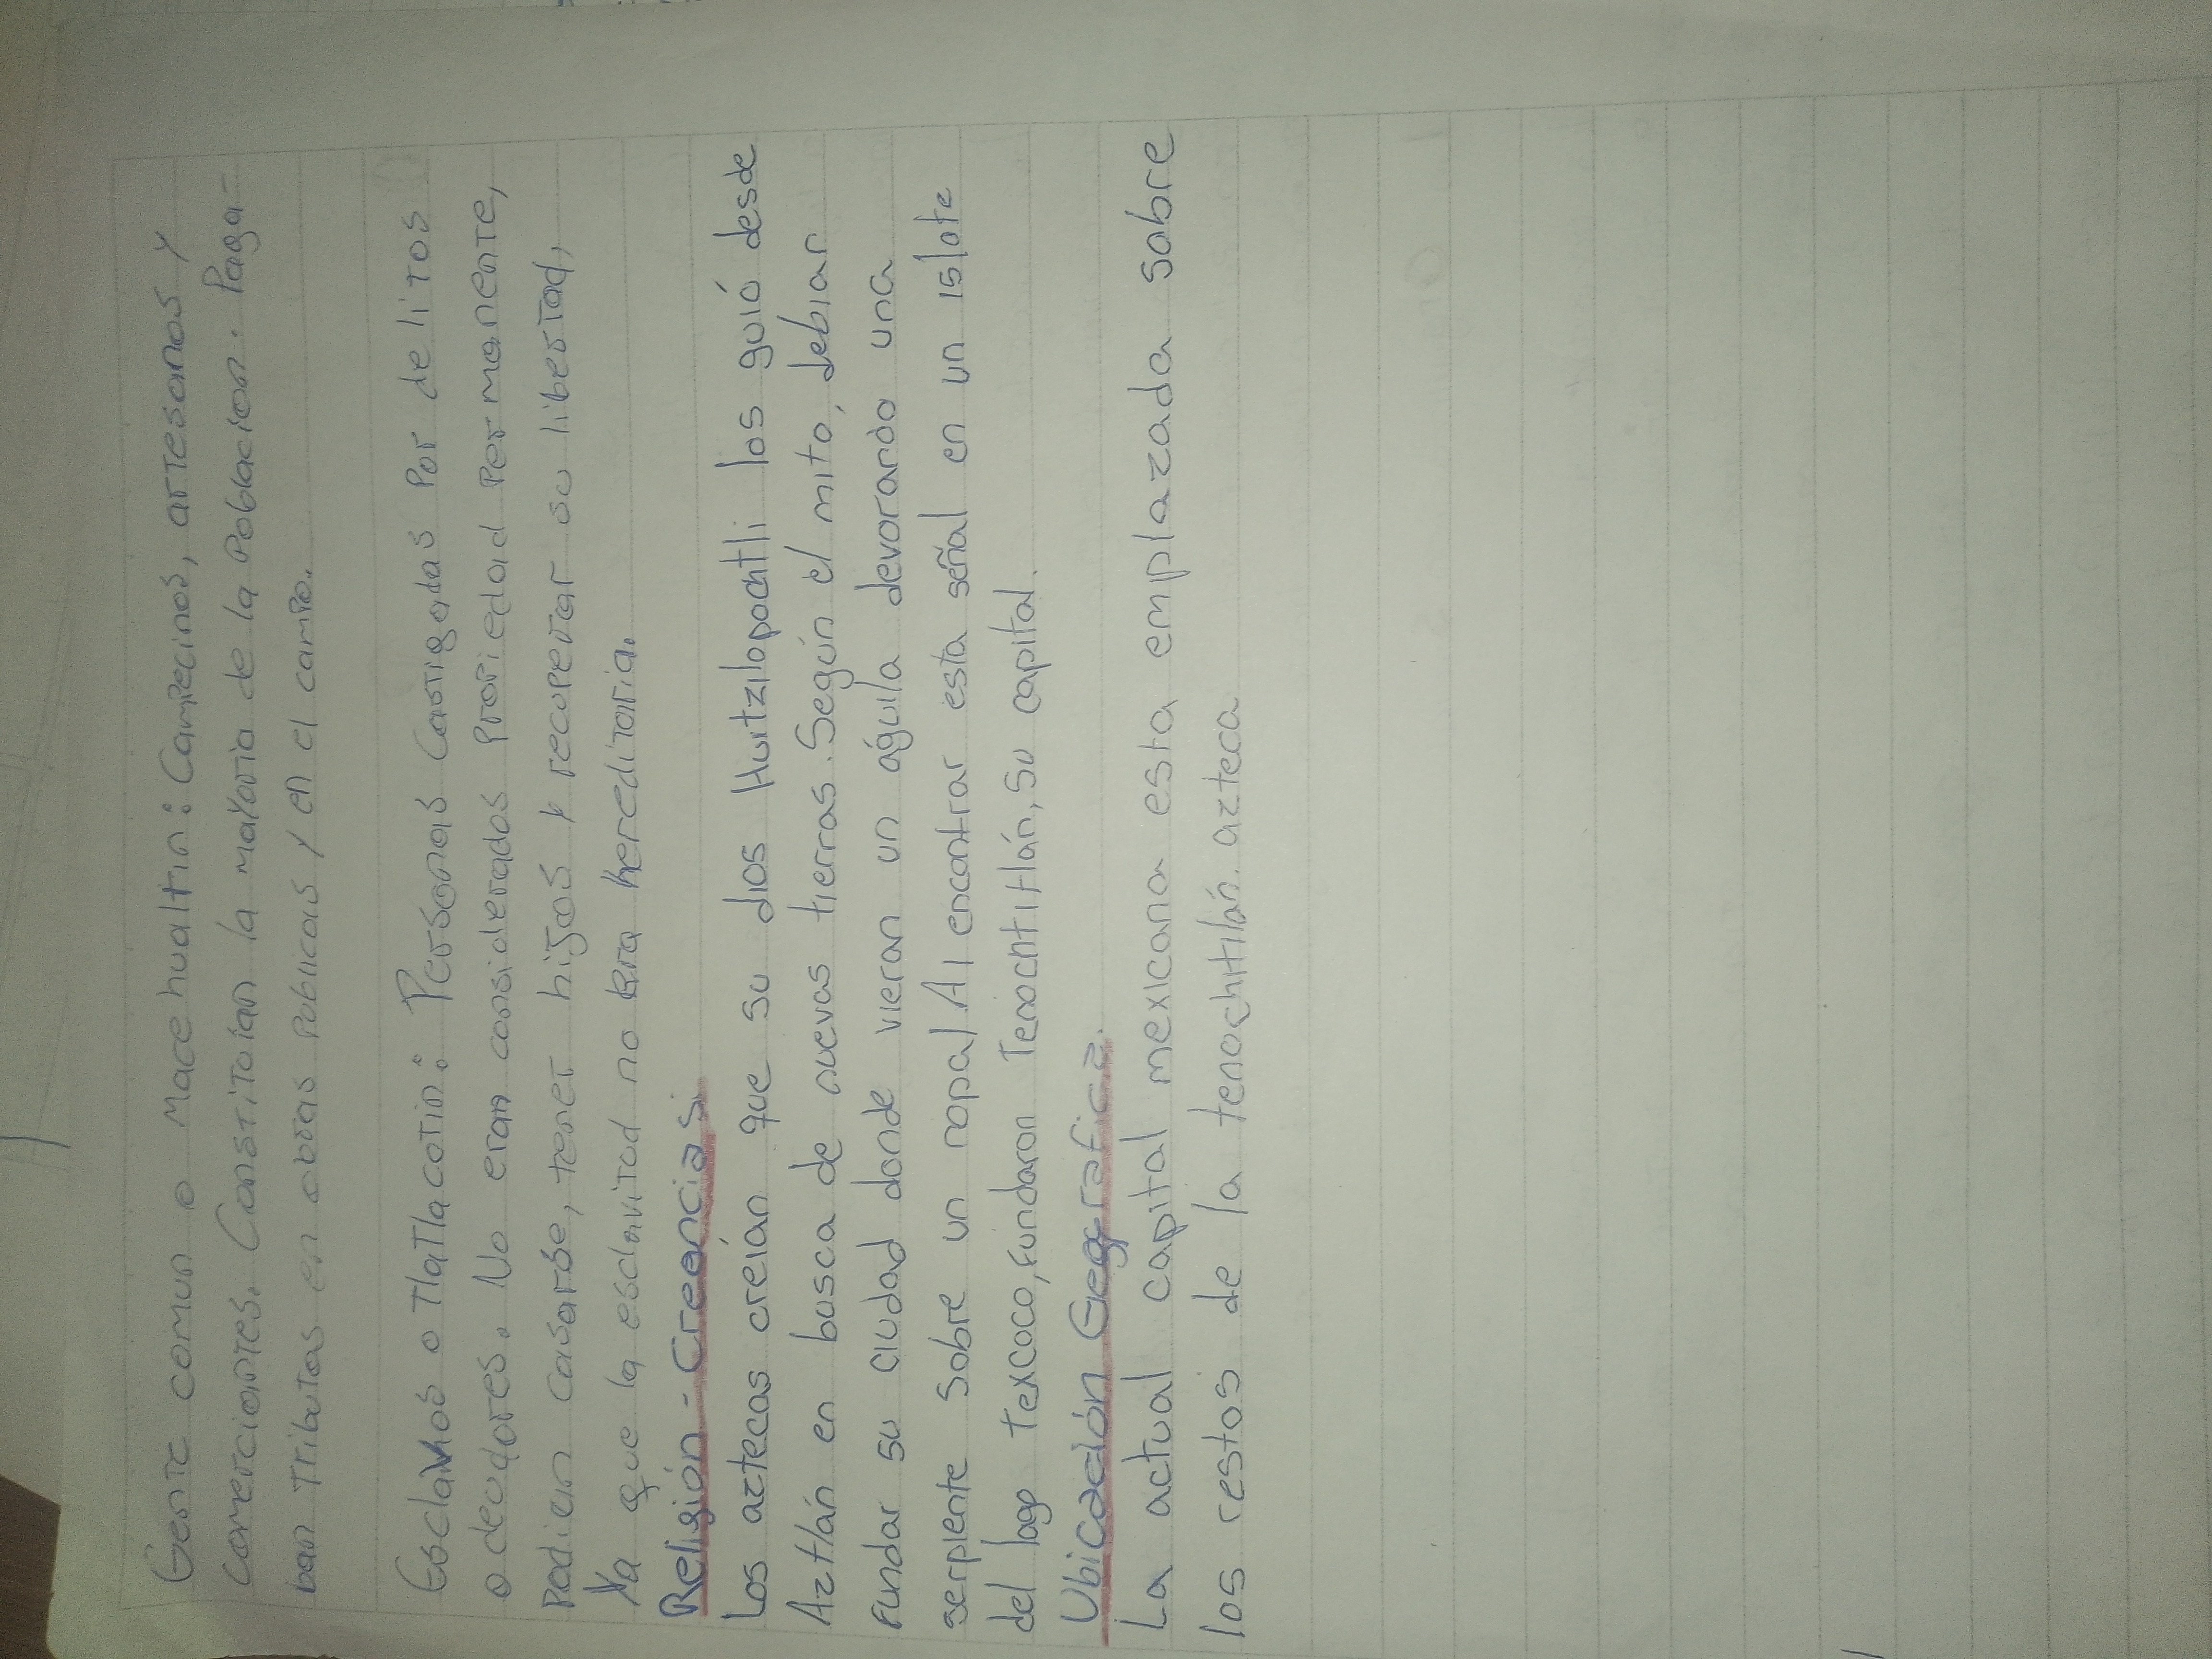 Gente comun o Macehualtin: Campecinos, artesanos y
comerciantes. Constituían la mayoria de la Poblacion. Paga-
ban Tributos en obras Publicas y en el campo.
Esclavos o Tlatlacotin: Personas Castigadas Por delitos
o deudores. No eran considerados Propiedad Permanente,
Podian casarse, tener hijos y recuperar su libertad,
Ya que la esclavitud no era hereditaria.
Religión - Creencias:
Los aztecas creían que su dios Huitzilopochtli los guió desde
Aztlán en busca de nuevas tierras. Según el mito, debian
Fundar su ciudad donde vieran un águila devorando una
serpiente sobre un nopal Al encontrar esta señal en un islote
del lago Texcoco, Fundaron Tenochtitlán, su capital.
Ubicación Gegrafica.
La actual capital mexicana esta emplazada sobre
los restos de la tenochtilán. azteca